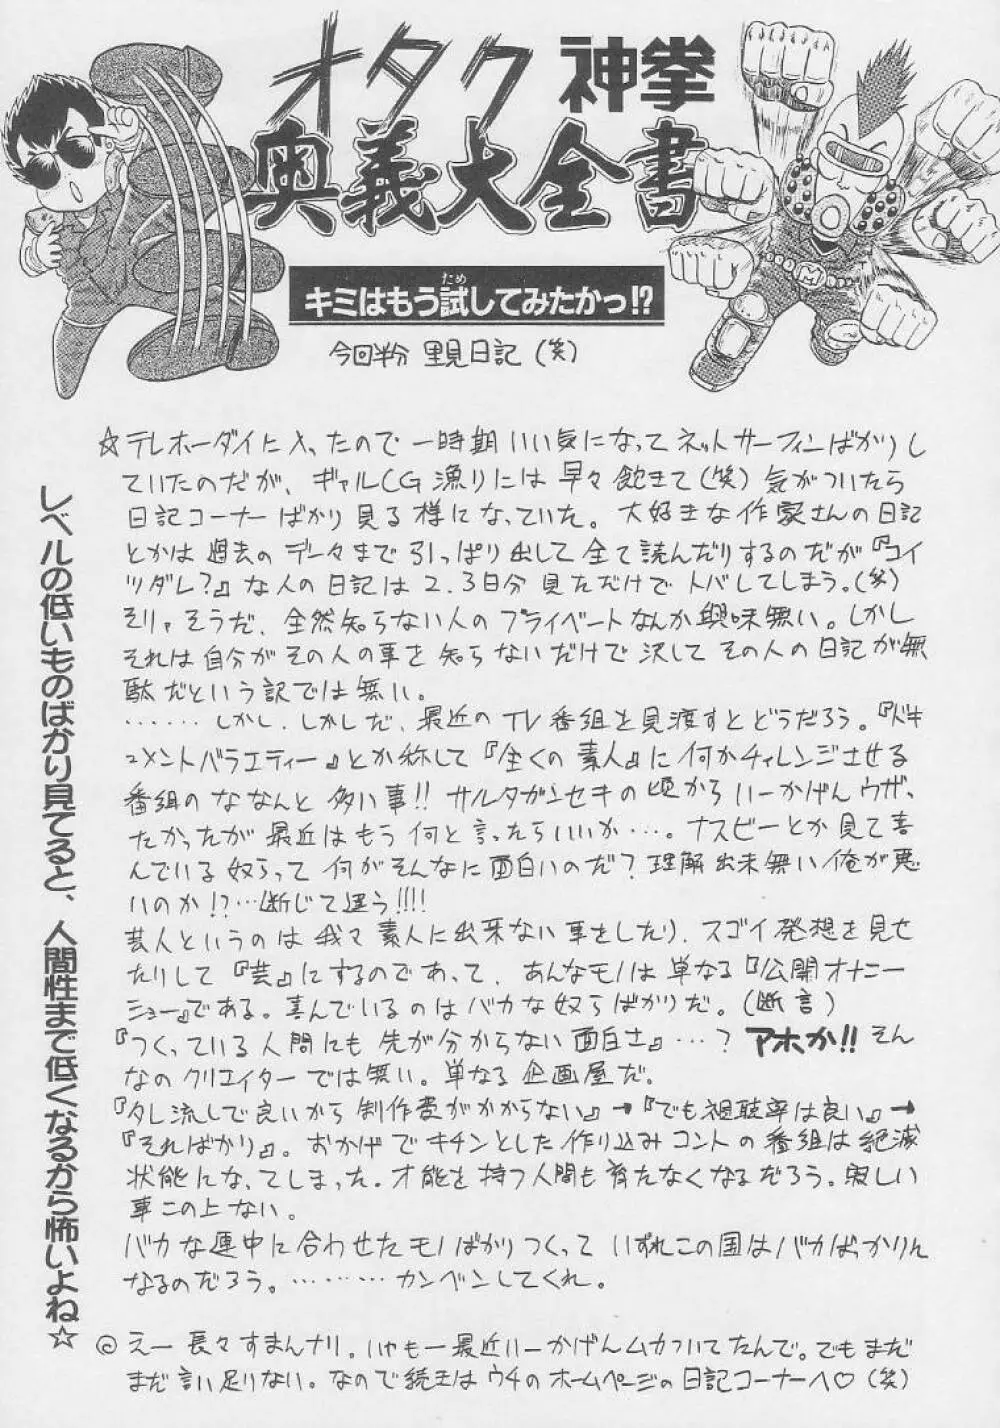 オタク神拳
奥義大全書
キミはもう試してみたかっ!?
ため
今回半分 里見日記(笑)
☆テレホーダイに入ったので一時期いい気になってネットサーフィンばかりし
ていたのだが、ギャルCG漁りには早々飽きて(笑)気がついたら
日記コーナーばかり見る様になっていた。大好きな作家さんの日記
とかは過去のデータまで引っぱり出して全て読んだりするのだが『コイ
ツダレ?』な人の日記は2.3日分見ただけでトバしてしまう。(笑)
そりゃそうだ、全然知らない人のプライベートなんか興味無い。しかし
それは自分がその人の事を知らないだけで決してその人の日記が無
駄だという訳では無い。
……しかし、しかしだ、最近のTV番組を見渡すとどうだろう。『ドキ
ュメントバラエティー』とか称して『全くの素人』に何かチャレンジさせる
番組のななんと多い事!!サルタガンセキの頃からいーかげんウザ
たかったが最近はもう何と言ったらいいか…。ナスビーとか見て喜
んでいる奴らって何がそんなに面白いのだ?理解出来無い俺が悪
いのか!?…断じて違う!!!!
芸人というのは我々素人に出来ない事をしたり、スゴイ発想を見せ
たりして『芸』にするのであって、あんなモノは単なる『公開オナニー
ショー』である。喜んでいるのはバカな奴らばかりだ。(断言)
『つくっている人間にも先が分からない面白さ』…?アホか!!そん
なのクリエイターでは無い。単なる企画屋だ。
『タレ流しで良いから制作費がかからない』→『でも視聴率は良い』→
『そればかり』。おかげでキチンとした作り込みコントの番組は絶滅
状態になってしまった。才能を持つ人間も育たなくなるだろう。寂しい
事この上ない。
バカな連中に合わせたモノばかりつくっていずれこの国はバカばっかりん
なるのだろう。………カンベンしてくれ。
◎えー長々すまんナリ。いやもー最近いーかげんムカついてたんで。でもまだ
まだ言い足りない。なので続きはウチのホームページの日記コーナーへ♡(笑)
レベルの低いものばかり見てると、人間性まで低くなるから怖いよね☆
M